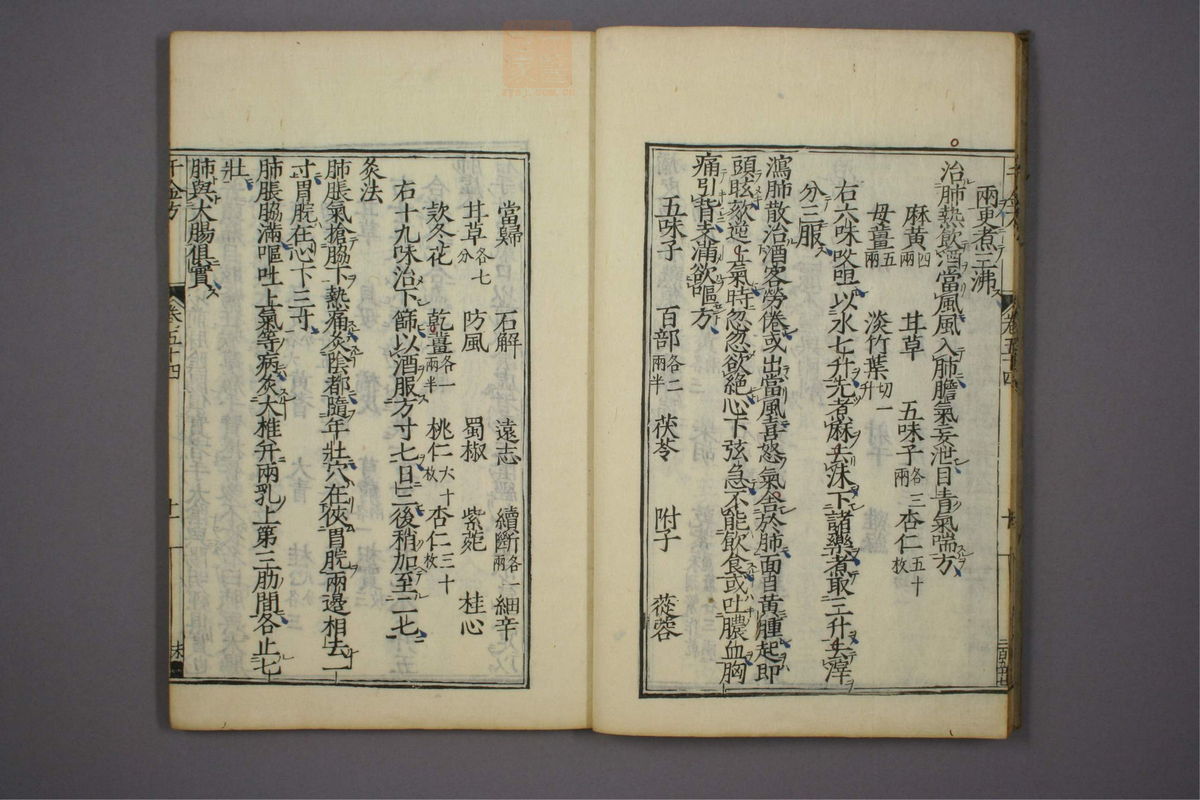 兩更煮三沸
治肺熱飲酒當風風入肺膽氣妄泄目青氣喘方
麻黃四兩 甘草 五味子各三兩 杏仁五十枚
母薑五兩 淡竹葉切一升
右六味㕮咀以水七升先煮麻去沫下諸藥煮取三升去滓
分三服
瀉肺散治酒客勞倦或出當風喜怒氣舍於肺面目黃腫起即
頭眩欬逆上氣時忽忽欲絕心下弦急不能飲食或吐膿血胸
痛引背支滿欲嘔方
五味子 百部各二兩半 茯苓 附子 蓯蓉
當歸 石解 遠志 續斷各一兩 細辛
甘草各七分 防風 蜀椒 紫菀 桂心
款冬花 乾薑各一兩半 桃仁六十枚 杏仁三十枚
右十九味治下篩以酒服方寸七日三後稍加至二七
灸法
肺脹氣搶脇下熱痛灸陰都隨年壯穴在俠胃脘兩邊相去一
寸胃脘在心下三寸
肺脹脇滿嘔吐上氣等病灸大椎并兩乳上第三肋間各止七
壯
肺與大腸俱實
千金方 卷五十四 十一